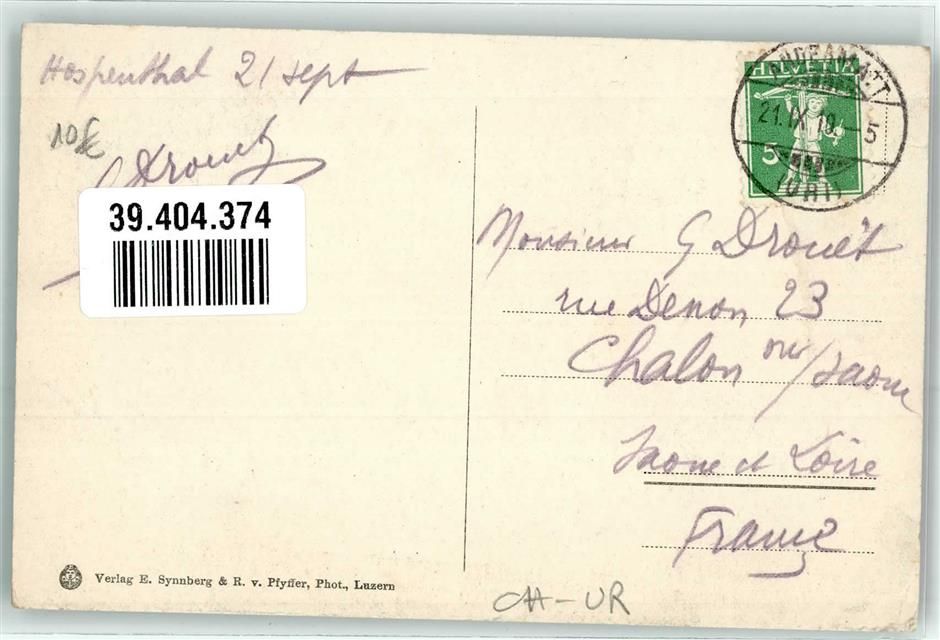 Hospenthal 21 sept
G Drouet
39.404.374
HELVETIA
5
ANDERMATT
21.IX.10. 5
(URI)
Monsieur G Drouët
rue Denon 23
Chalon sur/saone
Saone et Loire
France
Verlag E. Synnberg & R. v. Pfyffer, Phot., Luzern
CH-UR